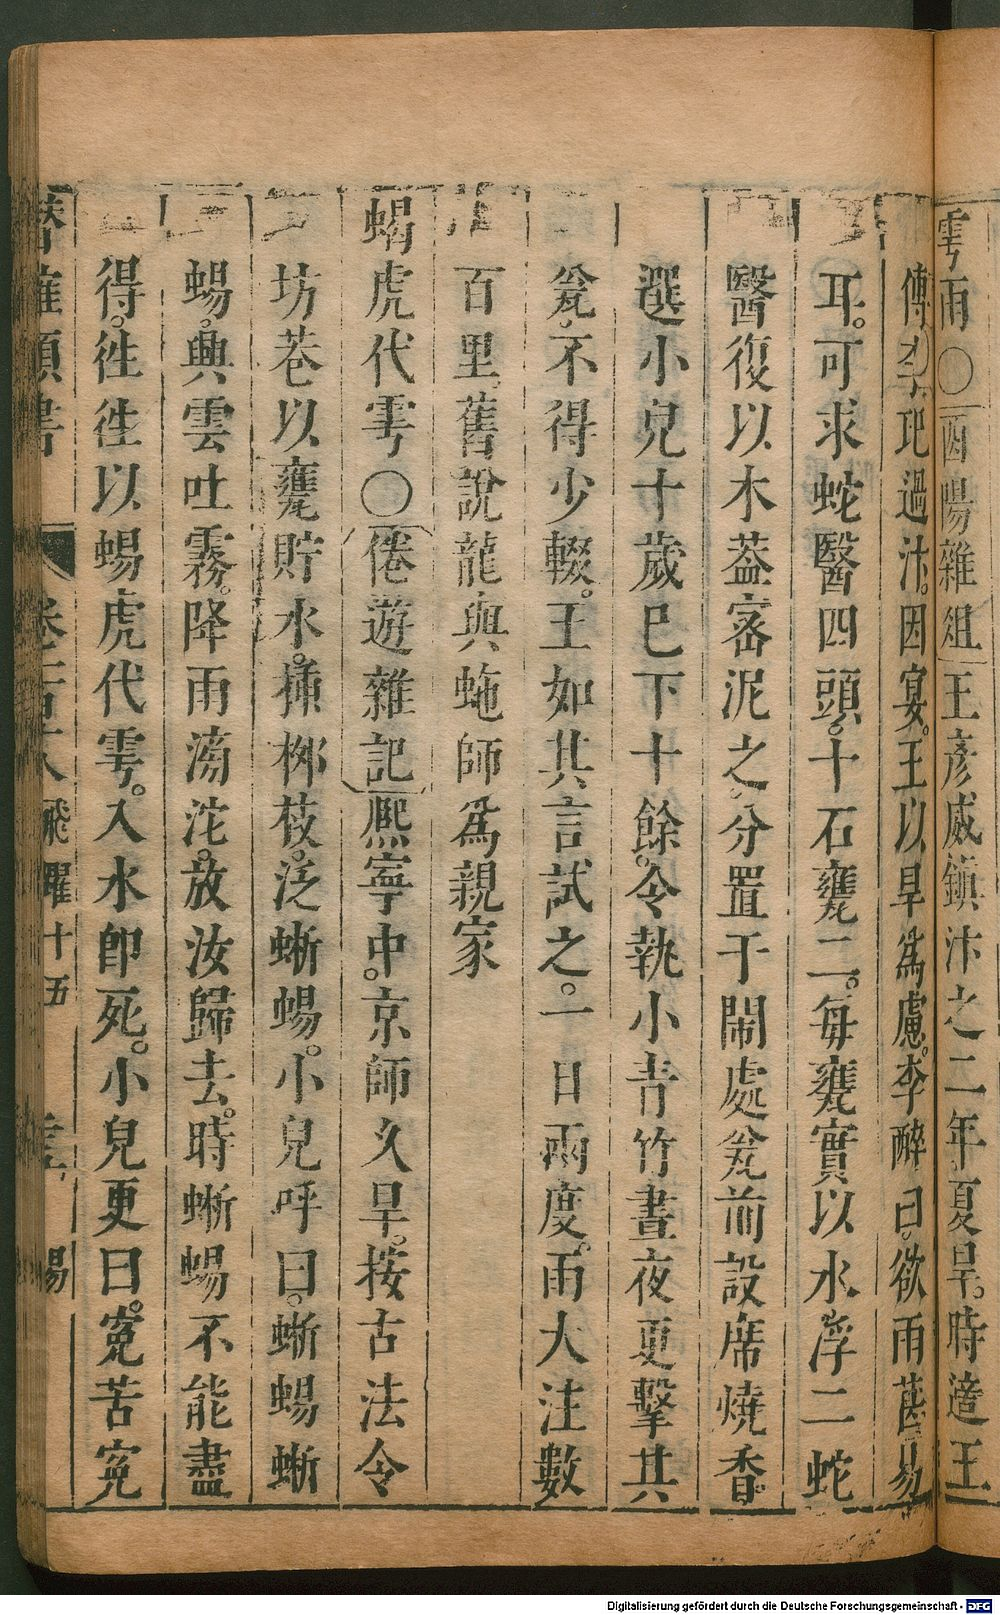 雩雨〇酉陽雜俎王彥威鎮汴之二年夏旱。時適王
傅李玘過汴。因宴。王以旱爲慮。李醉曰。欲雨甚易
耳。可求蛇醫四頭。十石甕二。每甕實以水浮二蛇
醫復以木葢密泥之分置于鬧處瓮前設席燒香。
選小兒十歲已下十餘。令執小青竹晝夜更擊其
瓮。不得少輟。王如其言試之。一日兩度。雨大注數
百里。舊說龍與虵師爲親家
蝎虎代雩〇倦遊雜記熈寧中。京師久旱。按古法令
坊巷以甕貯水。揷桞枝。泛蜥蜴。小兒呼曰。蜥蜴蜥
蜴。興雲吐霧。降雨滂沱。放汝歸去。時蜥蜴不能盡
得。徃徃以蜴虎代雩。入水卽死。小兒更曰。寃苦寃
潛確類書 卷一百 飛躍十五 蜴
Digitalisierung gefördert durch die Deutsche Forschungsgemeinschaft - DFG